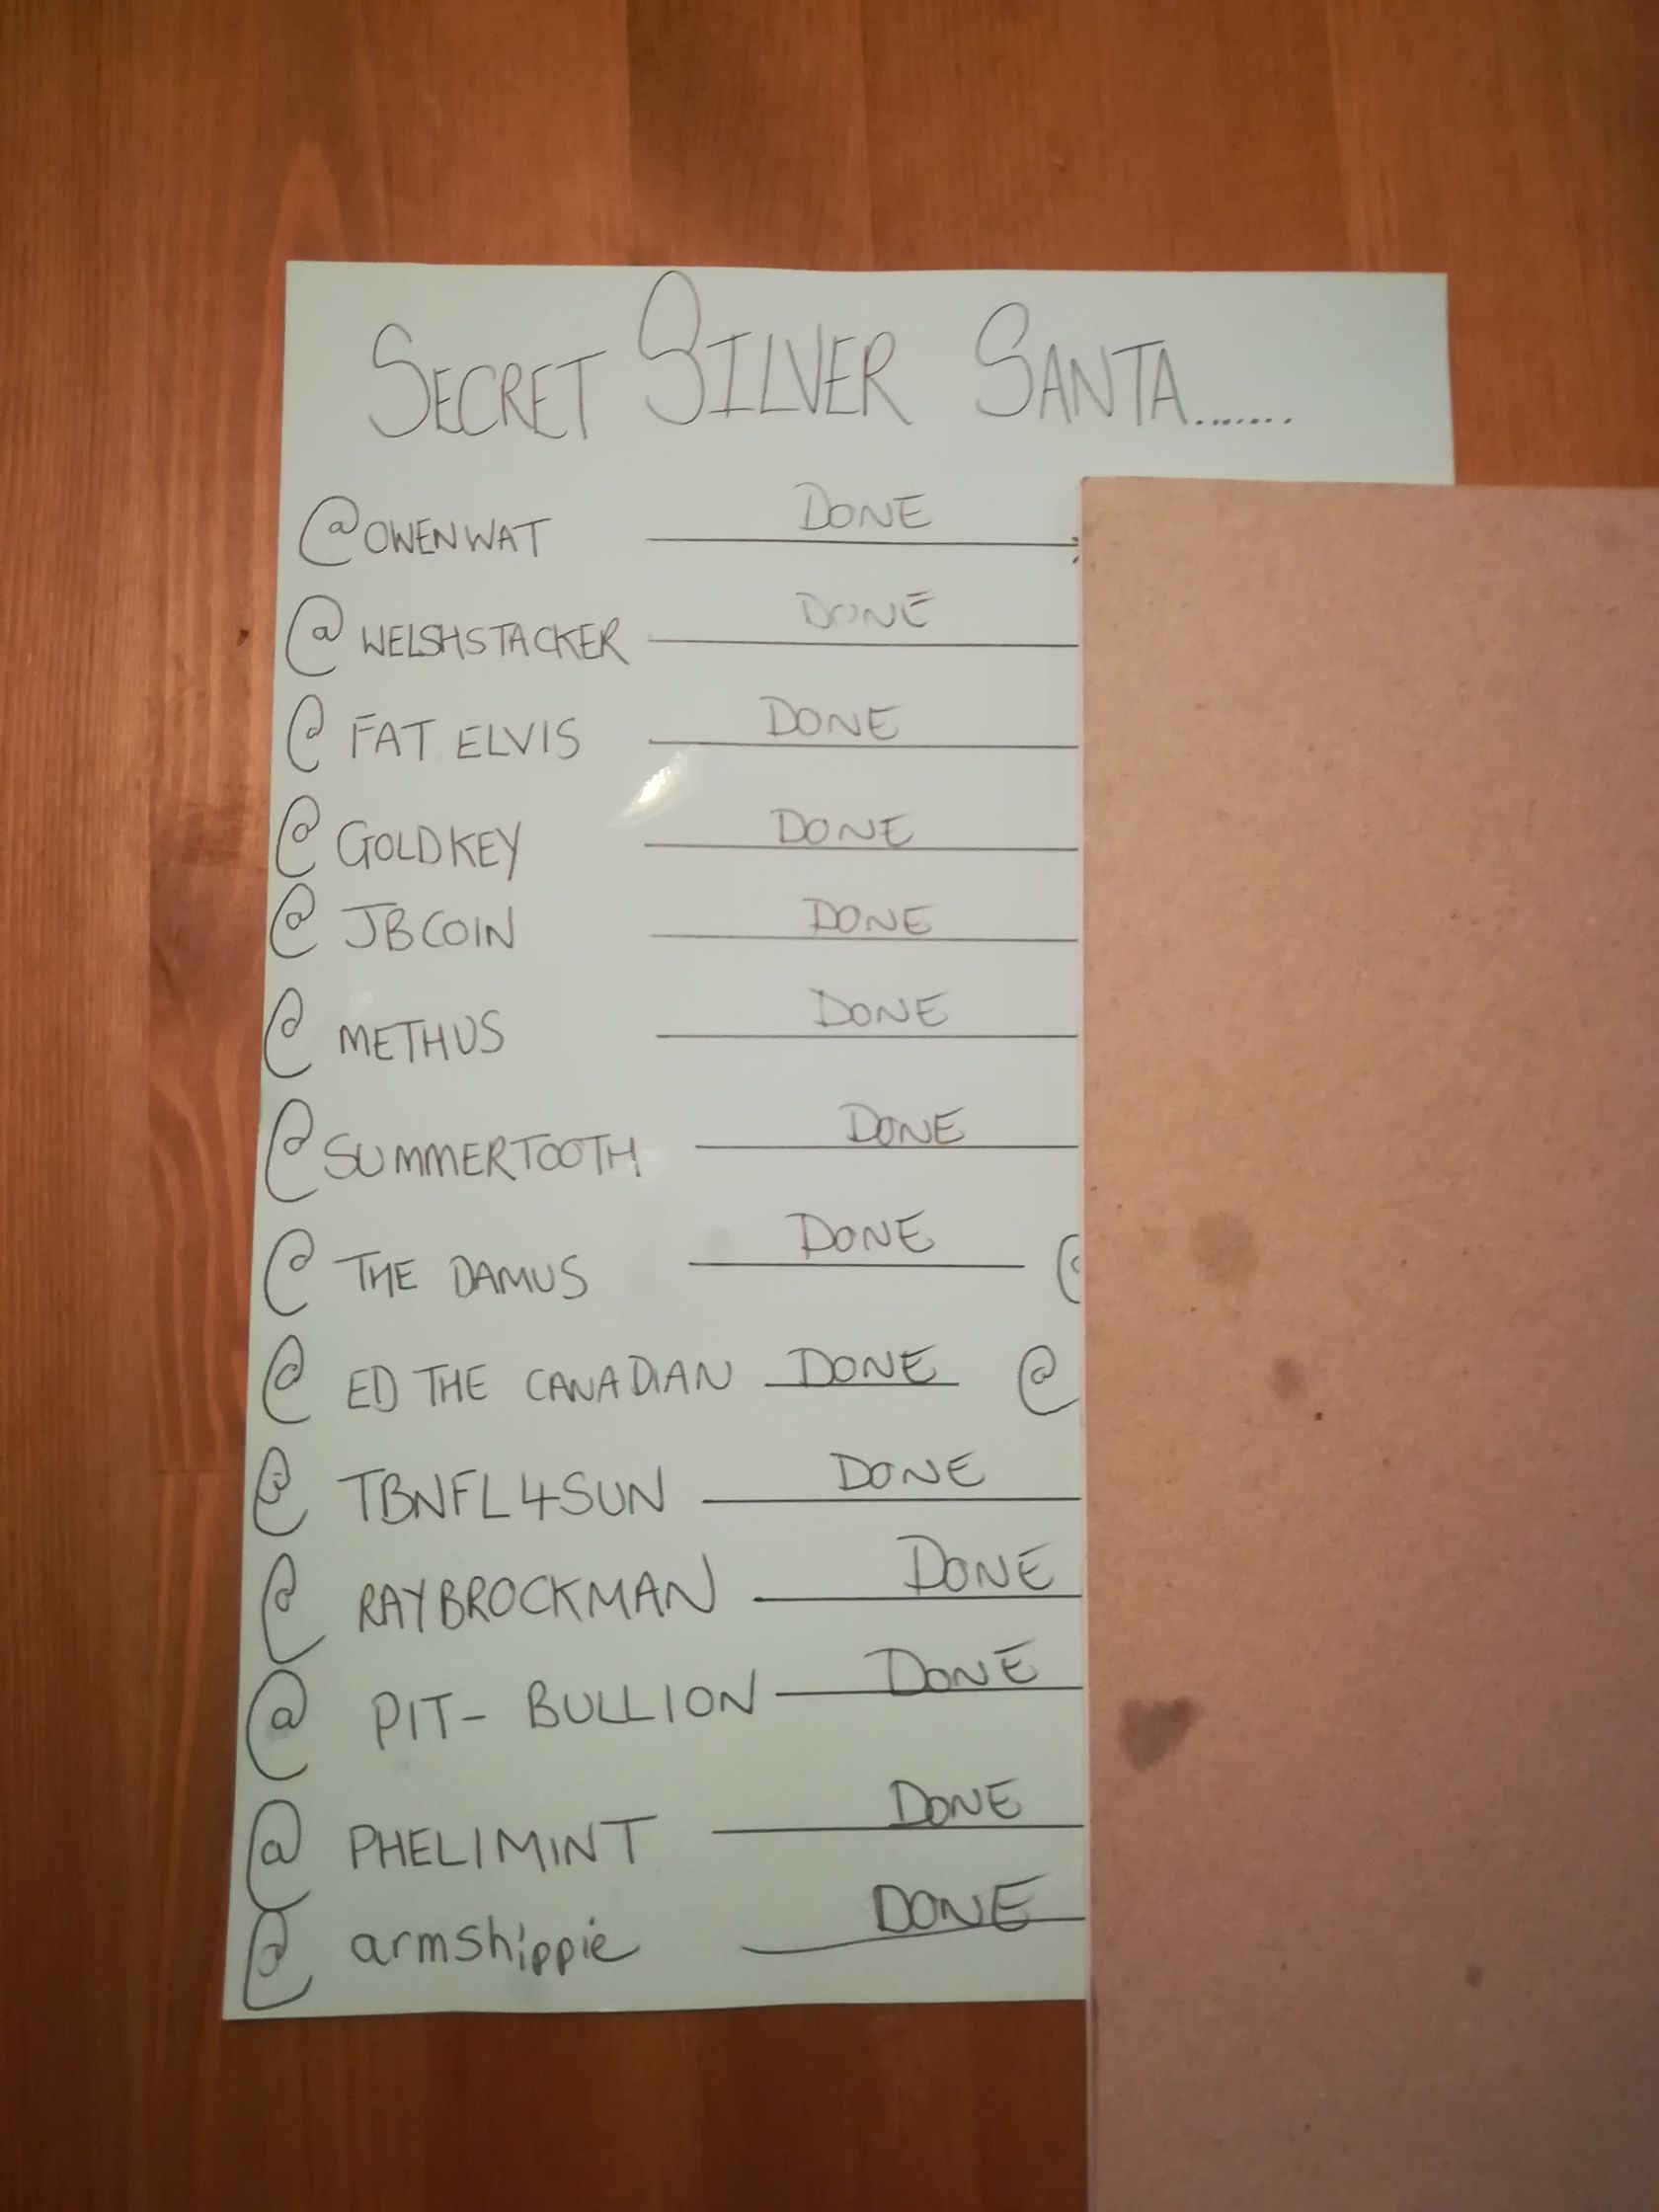 SECRET SILVER SANTA........
@OWENWAT DONE
@ WELSHSTACKER DONE
@ FAT ELVIS DONE
@ GOLDKEY DONE
@ JBCOIN DONE
@ METHUS DONE
@ SUMMERTOOTH DONE
@ THE DAMUS DONE @
@ ED THE CANADIAN DONE @
@ TBNFL4SUN DONE
@ RAYBROCKMAN DONE
@ PIT-BULLION DONE
@ PHELIMINT DONE
@ armshippie DONE